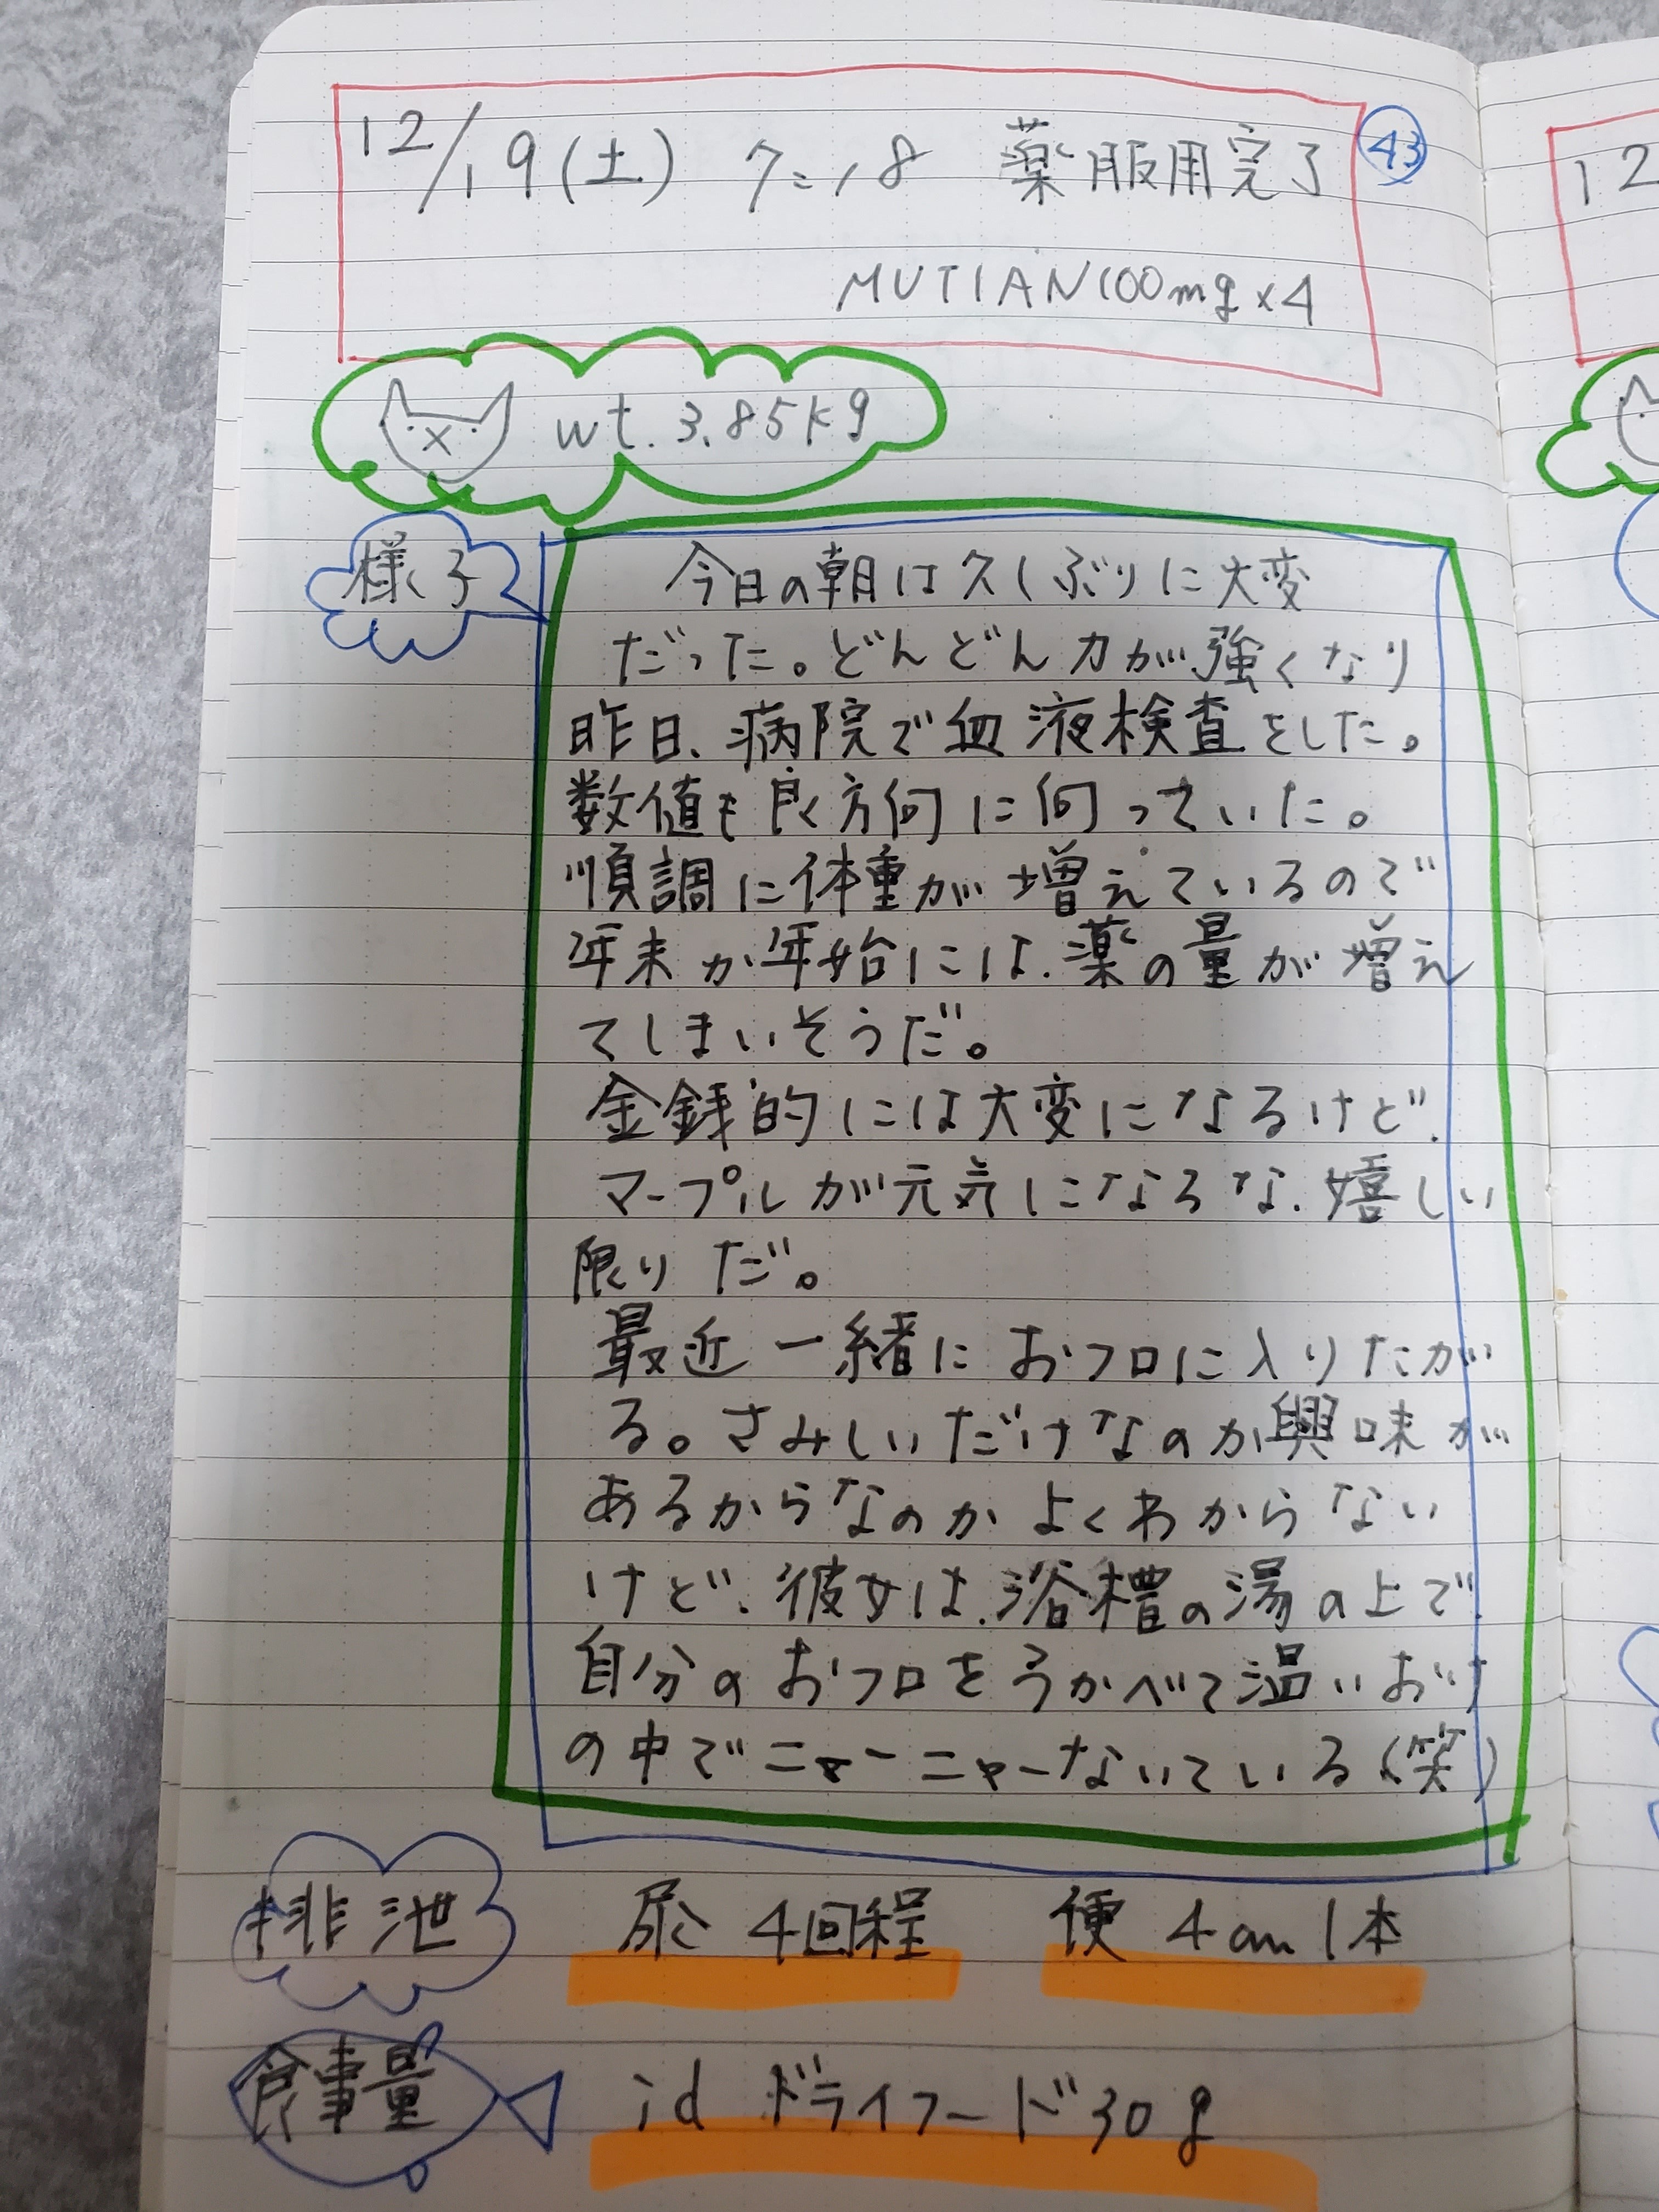 12/19(土) 7:18 薬服用完了 ㊸
MUTIAN100mg×4
wt. 3.85kg
様子
今日の朝は久しぶりに大変
だった。どんどん力が強くなり
昨日、病院で血液検査をした。
数値も良方向に向っていた。
順調に体重が増えているので
年末か年始には、薬の量が増え
てしまいそうだ。
金銭的には大変になるけど、
マープルが元気になるな、嬉しい
限りだ。
最近一緒におフロに入りたが
る。さみしいだけなのか興味が
あるからなのかよくわからない
けど、彼女は、浴槽の湯の上で、
自分のおフロをうかべて温いおけ
の中でニャーニャーないている(笑)
排泄 尿 4回程 便 4cm 1本
食事量 id ドライフード30g
12